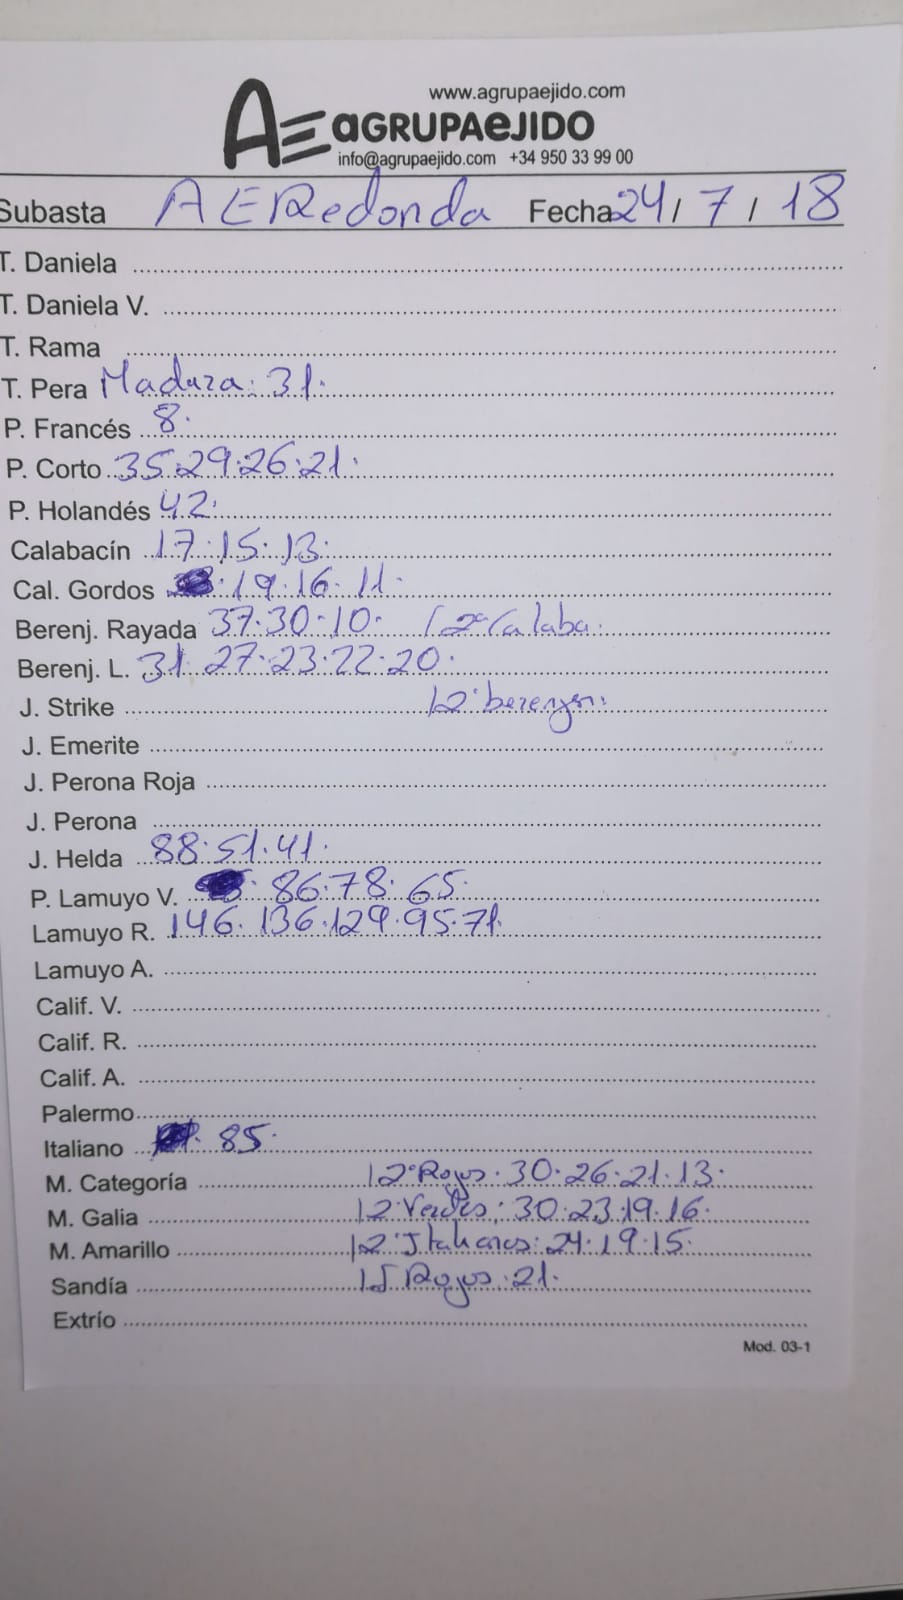 www.agrupaejido.com
AE aGRUPAeJIDO
info@agrupaejido.com +34 950 33 99 00
Subasta AERedonda Fecha 24/7/18
T. Daniela
T. Daniela V.
T. Rama
T. Pera Madura: 31.
P. Francés 8.
P. Corto 35.29.26.21.
P. Holandés 42.
Calabacín 17.15.13.
Cal. Gordos 19.16.11.
Berenj. Rayada 37.30.10.
Berenj. L. 31.27.23.22.20.
J. Strike
J. Emerite
J. Perona Roja
J. Perona
J. Helda 88.51.41.
P. Lamuyo V. 86.78.65.
Lamuyo R. 146.136.129.95.71.
Lamuyo A.
Calif. V.
Calif. R.
Calif. A.
Palermo
Italiano 85.
M. Categoría 12 Rojos: 30.26.21.13.
M. Galia 12 Verdes: 30.23.19.16.
M. Amarillo 12 Italianos: 24.19.15.
Sandía Rojos: 21.
Extrío
Mod. 03-1